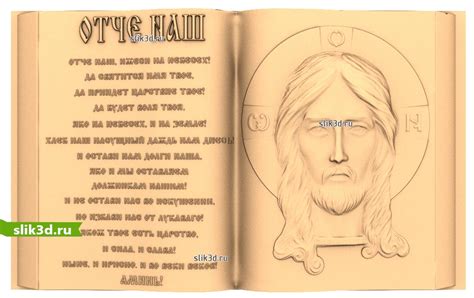 ОТЧЕ НАШ
slik3d.ru
ОТЧЕ НАШ, ИЖЕСИ НА НЕБЕСЕХ!
ДА СВЯТИТСЯ ИМЯ ТВОЕ,
ДА ПРИИДЕТ ЦАРСТВИЕ ТВОЕ!
ДА БУДЕТ ВОЛЯ ТВОЯ,
ЯКО НА НЕБЕСЕХ, И НА ЗЕМЛЕ!
ХЛЕБ НАШ НАСУЩНЫЙ ДАЖДЬ НАМ ДНЕСЬ!
И ОСТАВИ НАМ ДОЛГИ НАША,
ЯКО И МЫ ОСТАВЛЯЕМ
ДОЛЖНИКАМ НАШИМ!
И НЕ ОСТАВИ НАС ВО ИСКУШЕНИИ,
НО ИЗБАВИ НАС ОТ ЛУКАВАГО!
ЯКОЖ ТВОЕ ЕСТЬ ЦАРСТВО,
slik3d.ru
И СИЛА, И СЛАВА!
slik3d.ru
НЫНЕ, И ПРИСНО, И ВО ВЕКИ ВЕКОВ!
АМИНЬ!
slik3d.ru